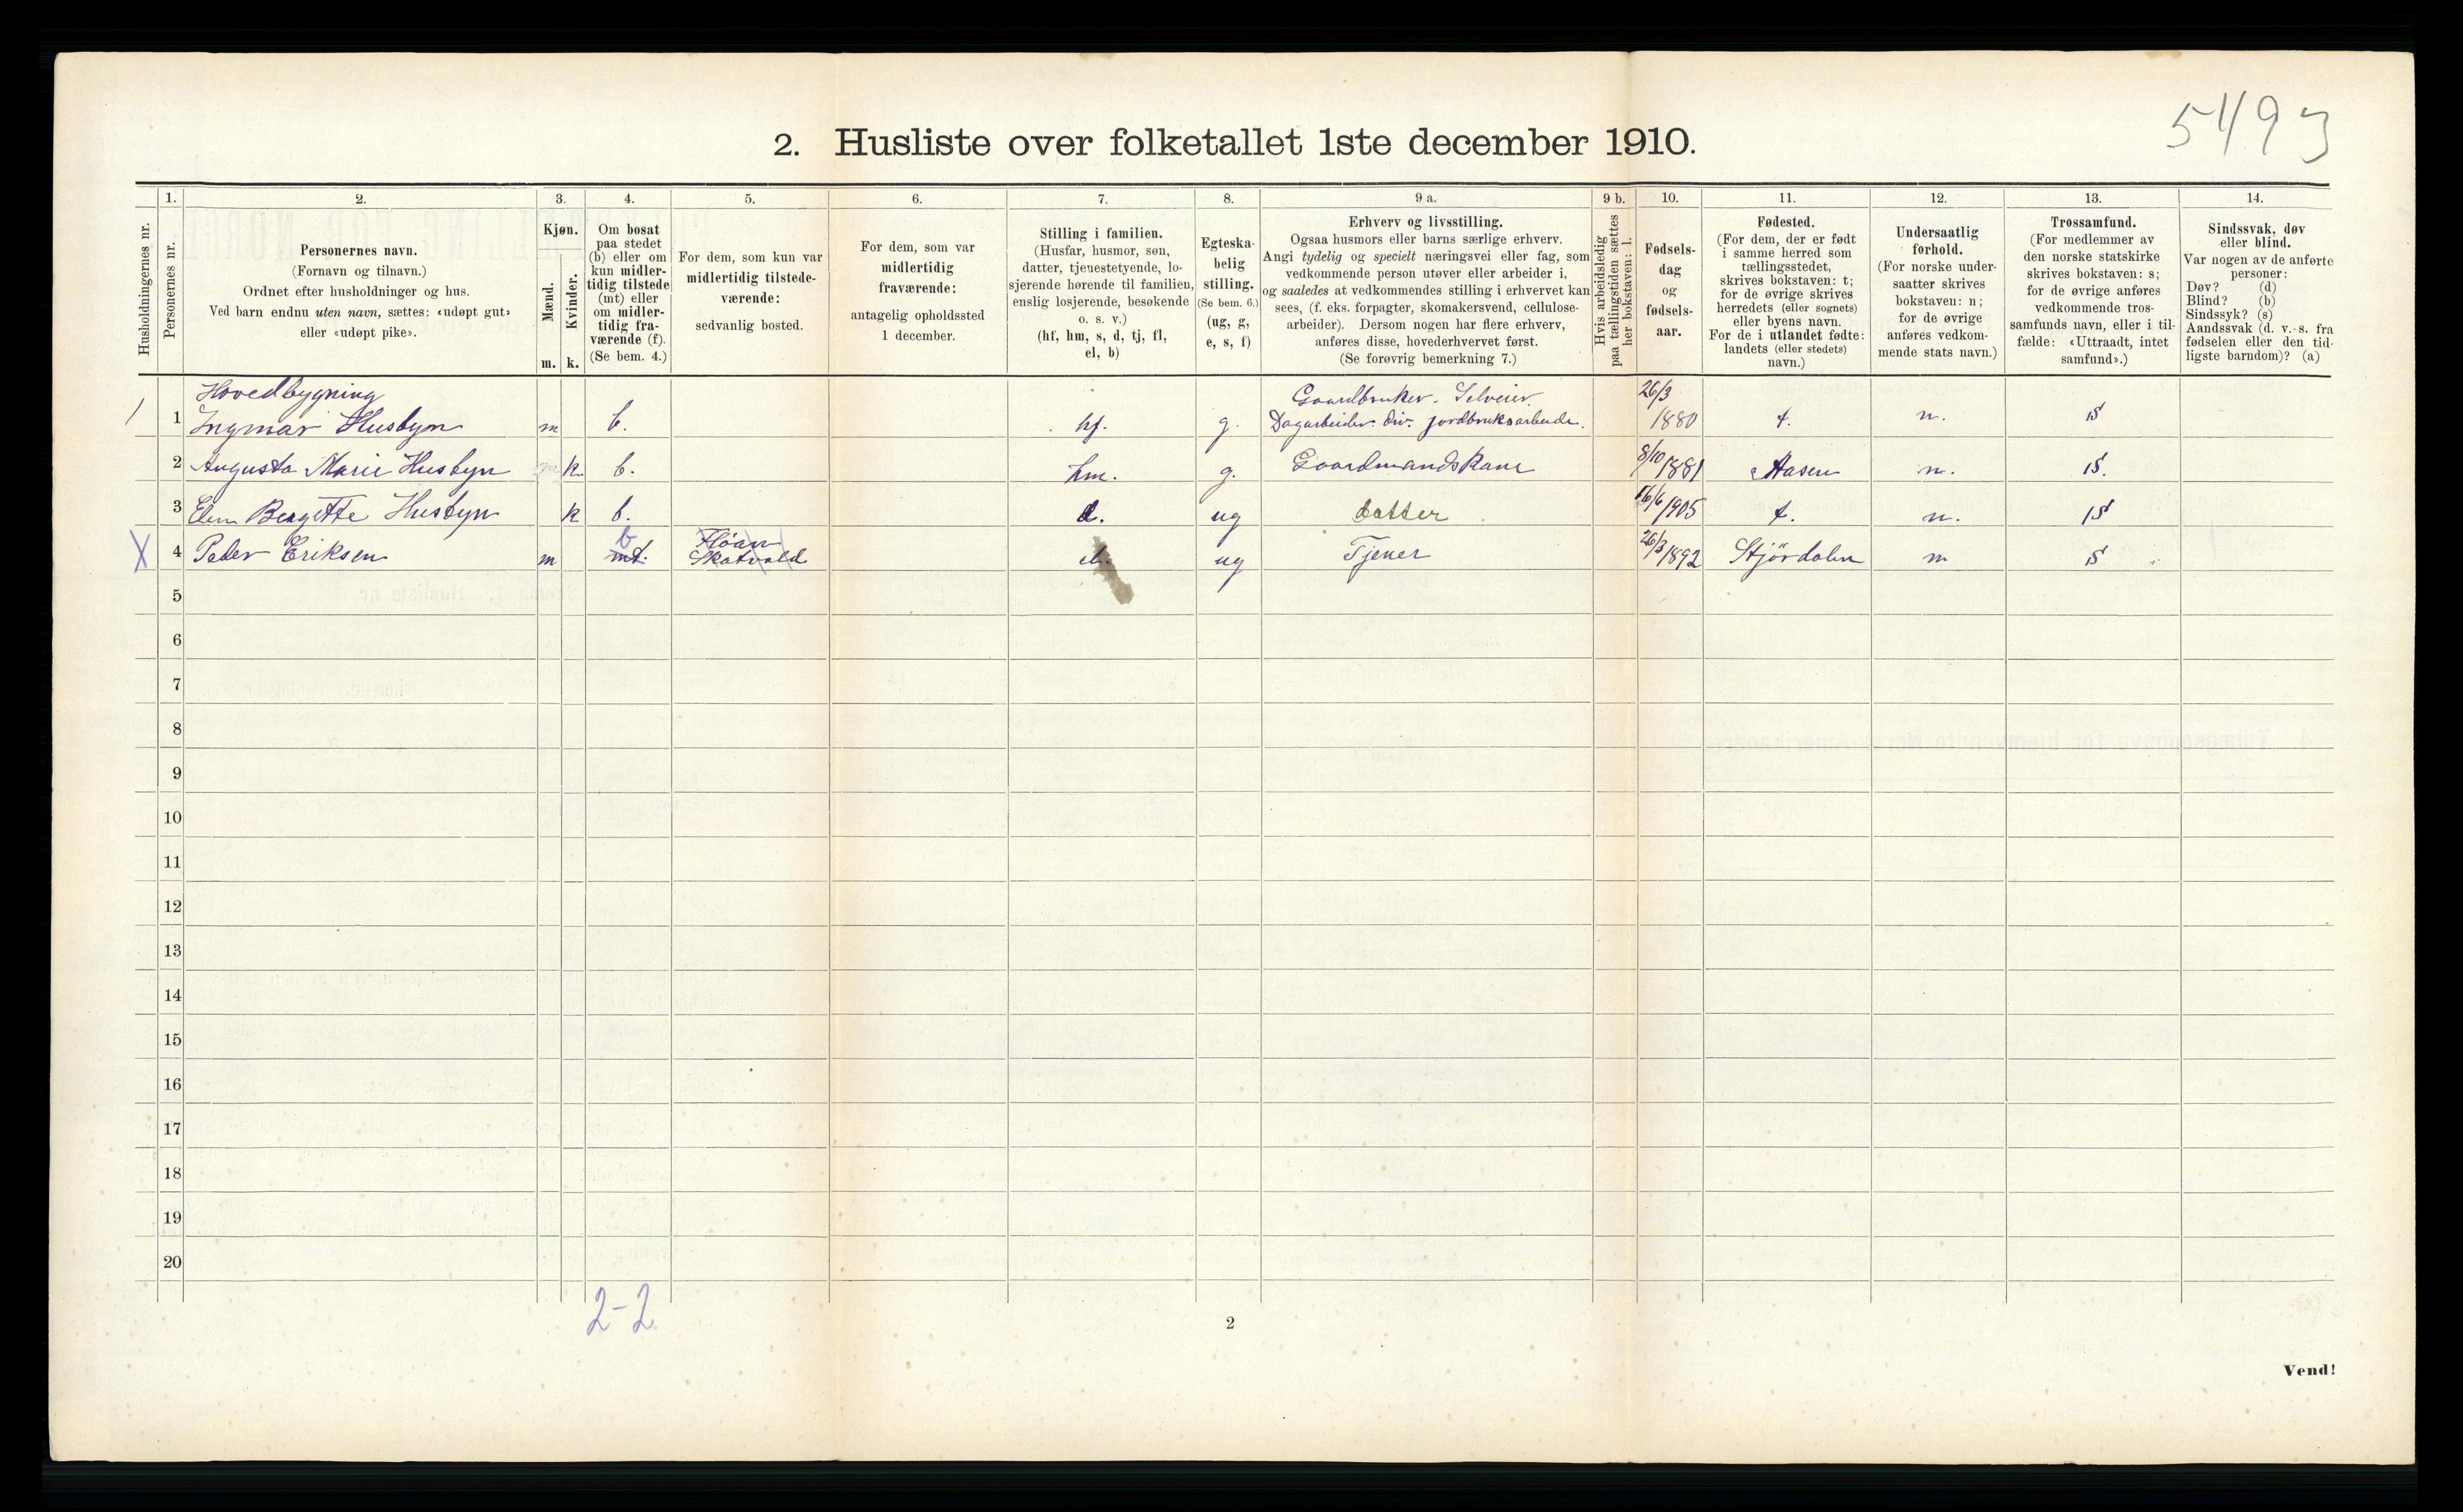 5493
2. Husliste over folketallet 1ste december 1910.
Husholdningernes nr.
1.
Personernes nr.
2.
Personernes navn.
(Fornavn og tilnavn.)
Ordnet efter husholdninger og hus.
Ved barn endnu uten navn, sættes: «udøpt gut»
eller «udøpt pike».
3.
Kjøn.
Mænd.
Kvinder.
m. k.
4.
Om bosat
paa stedet
(b) eller om
kun midler-
tidig tilstede
(mt) eller
om midler-
tidig fra-
værende (f).
(Se bem. 4.)
5.
For dem, som kun var
midlertidig tilstede-
værende:
sedvanlig bosted.
6.
For dem, som var
midlertidig
fraværende:
antagelig opholdssted
1 december.
7.
Stilling i familien.
(Husfar, husmor, søn,
datter, tjenestetyende, lo-
sjerende hørende til familien,
enslig losjerende, besøkende
o. s. v.)
(hf, hm, s, d, tj, fl,
el, b)
8.
Egteska-
belig
stilling.
(Se bem. 6.)
(ug, g,
e, s, f)
9 a.
Erhverv og livsstilling.
Ogsaa husmors eller barns særlige erhverv.
Angi tydelig og specielt næringsvei eller fag, som
vedkommende person utøver eller arbeider i,
og saaledes at vedkommendes stilling i erhvervet kan
sees, (f. eks. forpagter, skomakersvend, cellulose-
arbeider). Dersom nogen har flere erhverv,
anføres disse, hovederhvervet først.
(Se forøvrig bemerkning 7.)
9 b.
Hvis arbeidsledig
paa tællingstiden sættes
her bokstaven: l.
10.
Fødsels-
dag
og
fødsels-
aar.
11.
Fødested.
(For dem, der er født
i samme herred som
tællingsstedet,
skrives bokstaven: t;
for de øvrige skrives
herredets (eller sognets)
eller byens navn.
For de i utlandet fødte:
landets (eller stedets)
navn.)
12.
Undersaatlig
forhold.
(For norske under-
saatter skrives
bokstaven: n;
for de øvrige
anføres vedkom-
mende stats navn.)
13.
Trossamfund.
(For medlemmer av
den norske statskirke
skrives bokstaven: s;
for de øvrige anføres
vedkommende tros-
samfunds navn, eller i til-
fælde: «Uttraadt, intet
samfund».)
14.
Sindssvak, døv
eller blind.
Var nogen av de anførte
personer:
Døv? (d)
Blind? (b)
Sindssyk? (s)
Aandssvak (d. v. s. fra
fødselen eller den tid-
ligste barndom)? (a)
Hovedbygning Gaardbruker. Selveier. 26/3
1 Ingmar Husbyn m b. hf. g. Dagarbeider div. jordbruksarbeide. 1880 t. n. s
2 Augusta Marie Husbyn k. b. hm. g. Gaardmandskone 8/10 1881 Aasen n. s.
3 Bergitte Husbyn k b. d. ug datter 16/6 1905 t. n. s
b Flöan
X 4 Peder Eriksen m mt. Skatvold ug Tjener 26/3 1892 Stjördalen n s
5
6
7
8
9
10
11
12
13
14
15
16
17
18
19
20
2-2
2
Vend!